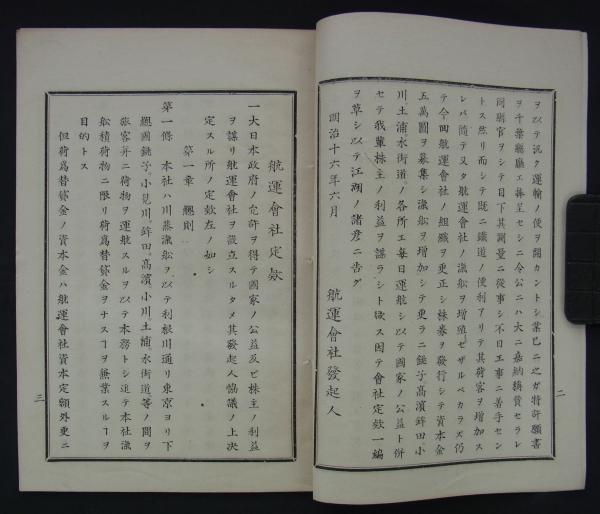 ヲ以テ汎ク運輸ノ便ヲ開カントシ業已ニ之ガ特許願書
ヲ千葉縣廳エ捧呈セシニ令公ニハ大ニ嘉納稱賛セラレ
同縣官ヲシテ目下其測量ニ從事シ不日工事ニ着手セン
トス然リ而シテ既ニ鐵道ノ便利アリテ其荷客ヲ増加ス
レバ隨テ又タ航運會社ノ滊舩ヲ増殖セザルベカラズ仍
テ今回航運會社ノ組織ヲ更正シ株劵ヲ發行シテ資本金
五萬圓ヲ募集シ滊舩ヲ増加シテ更ラニ銚子高濱鉾田小
川土浦水街道ノ各所エ毎日運航シ以テ國家ノ公益ト併
セテ我輩株主ノ利益ヲ謀ラント欲ス因テ會社定欵一編
ヲ草シ以テ江湖ノ諸君ニ告グ
明治十六年六月
航運會社發起人
二
航運會社定欵
一大日本政府ノ允許ヲ得テ國家ノ公益及ビ株主ノ利益
ヲ謀リ航運會社ヲ設立スルタメ其發起人協議ノ上决
定スル所ノ定欵左ノ如シ
第一章 總則
第一條 本社ハ川蒸滊舩ヲ以テ利根川通リ東京ヨリ下
總國銚子。小見川鉾田。高濱小川土浦水街道等ノ間ヲ
旅客并ニ荷物ヲ運航スルヲ以テ本務トシ迨テ本社滊
舩積荷物ニ限リ荷爲替貸金ヲナスヿヲ兼業スルヿヲ
目的トス
但荷爲替貸金ノ資本金ハ航運會社資本定額外更ニ
三